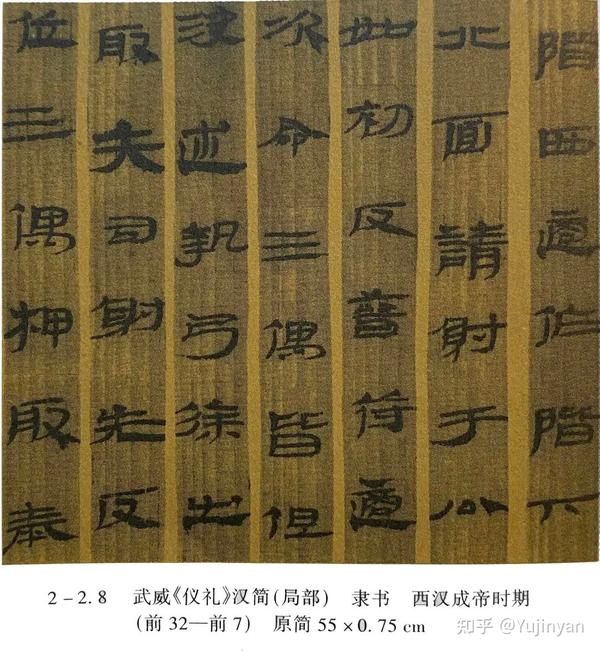 階西適作階下
北面請射于公
如初反晉適
次命三偶皆但
決述執弓徐出
取矢司射先反
位三偶押取
2-2.8 武威《仪礼》汉简(局部) 隶书 西汉成帝时期
(前32—前7) 原简55×0.75 cm
知乎 @Yujinyan